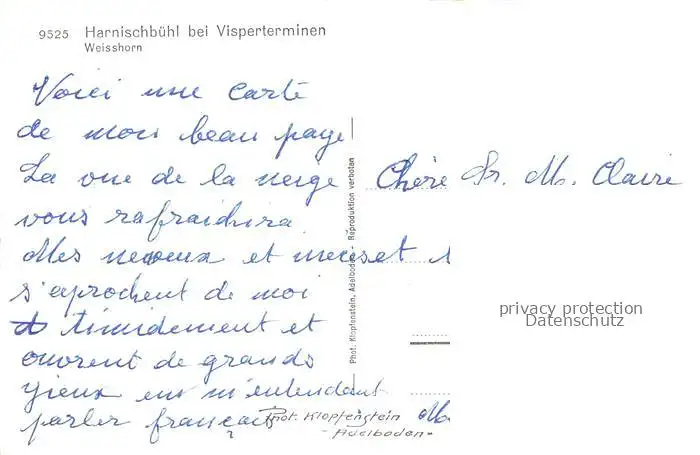 9525 Harnischbühl bei Visperterminen
Weisshorn
Voici une carte
de mon beau paye
La vue de la neige
vous rafraichira
Mes neveux et nieces et
s'aprochent de moi
timidement et
ouvrent de grands
yieux en m'entendant
parler français
Chère Sr. M. Claire
Phot. Klopfenstein, Adelboden - Reproduktion verboten
privacy protection
Datenschutz
Phot. Klopfenstein
- Adelboden -